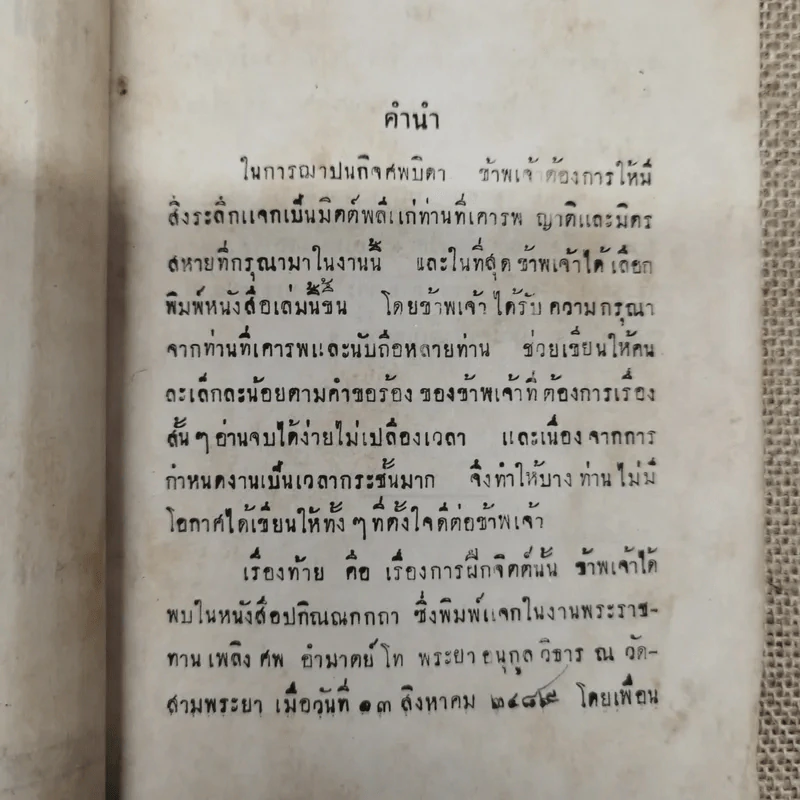 คำนำ
ในการฌาปนกิจศพบิดา ข้าพเจ้าต้องการให้มี
สิ่งระลึกแจกเป็นมิตต์พลีแก่ท่านที่เคารพ ญาติและมิตร
สหายที่กรุณามาในงานนี้ และในที่สุดข้าพเจ้าได้เลือก
พิมพ์หนังสือเล่มนี้ขึ้น โดยข้าพเจ้าได้รับความกรุณา
จากท่านที่เคารพและนับถือหลายท่าน ช่วยเขียนให้คน
ละเล็กละน้อยตามคำขอร้องของข้าพเจ้าที่ต้องการเรื่อง
สั้นๆอ่านจบได้ง่ายไม่เปลืองเวลา และเนื่องจากการ
กำหนดงานเป็นเวลากระชั้นมาก จึงทำให้บางท่านไม่มี
โอกาศได้เขียนให้ทั้งๆที่ตั้งใจดีต่อข้าพเจ้า
เรื่องท้าย คือ เรื่องการฝึกจิตต์นั้น ข้าพเจ้าได้
พบในหนังสือปกิณณกกถา ซึ่งพิมพ์แจกในงานพระราช-
ทานเพลิงศพ อำมาตย์โท พระยาอนุกูลวิธาร ณ วัด-
สามพระยา เมื่อวันที่ ๑๓ สิงหาคม ๒๔๘๙ โดยเพื่อน